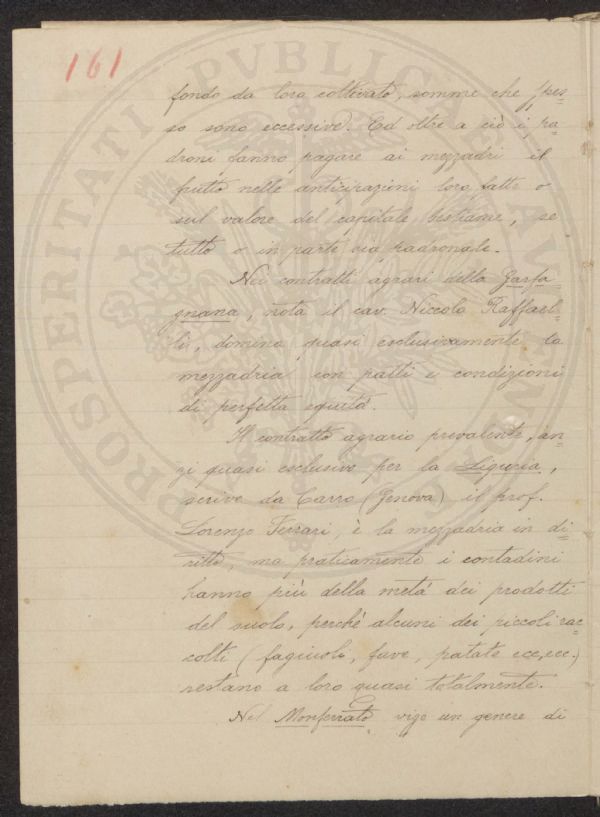 161
PROSPERITATI PVBLICAE AVGENDAE
fondo da loro coltivato, somme che spes-
so sono eccessive. Ed oltre a ciò i pa-
droni fanno pagare ai mezzadri il
frutto nelle anticipazioni loro fatte o
sul valore del capitale bestiame, se
tutto o in parte sia padronale.
Nei contratti agrari nella Garfa-
gnana, nota il cav. Niccolo Raffael-
li, domina quasi esclusivamente la
mezzadria con patti e condizioni
di perfetta equità.
Il contratto agrario prevalente, an-
zi quasi esclusivo per la Liguria,
scrive da Carro (Genova) il prof.
Lorenzo Ferrari, è la mezzadria in di-
ritto, ma praticamente i contadini
hanno più della metà dei prodotti
del suolo, perchè alcuni dei piccoli rac-
colti (fagiuoli, fave, patate ecc. ecc.)
restano a loro quasi totalmente.
Nel Monferrato vige un genere di